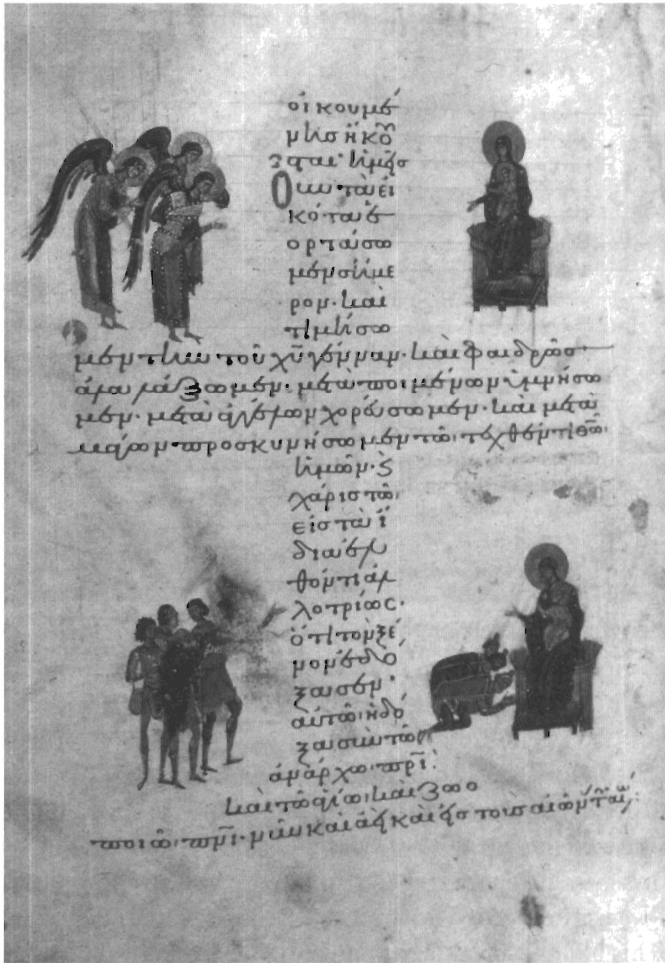 οἰκουμέ
νης
τὰ εἰ
κότα ἑ
ορτάσω
μεν σήμε
ρον· καὶ
τιμήσω
μεν τὴν τοῦ χ̅υ̅ γένναν· καὶ φαιδρῶς
μετὰ ποιμένων ὑμνήσω
μεν· μετὰ ἀγγέλων χορεύσωμεν· καὶ μετὰ
μάγων προσκυνήσωμεν τῶ τεχθέντι θ̅ω̅
ἡμῶν·
χάρις τῶ
εἰς τὰ ἴ
δια ἐλ
θόντι ἀλ
λοτρίως·
ὅτι τὸν ξέ
νον ἐδό
ξασεν·
αὐτῶ ἡ δό
ξα σὺν τῶ
ἀνάρχω π̅ρ̅ι̅·
καὶ τῶ ἁγίω καὶ ζωο
ποιῶ π̅ν̅ι̅· νῦν καὶ ἀεὶ καὶ εἰς τοὺς αἰῶν